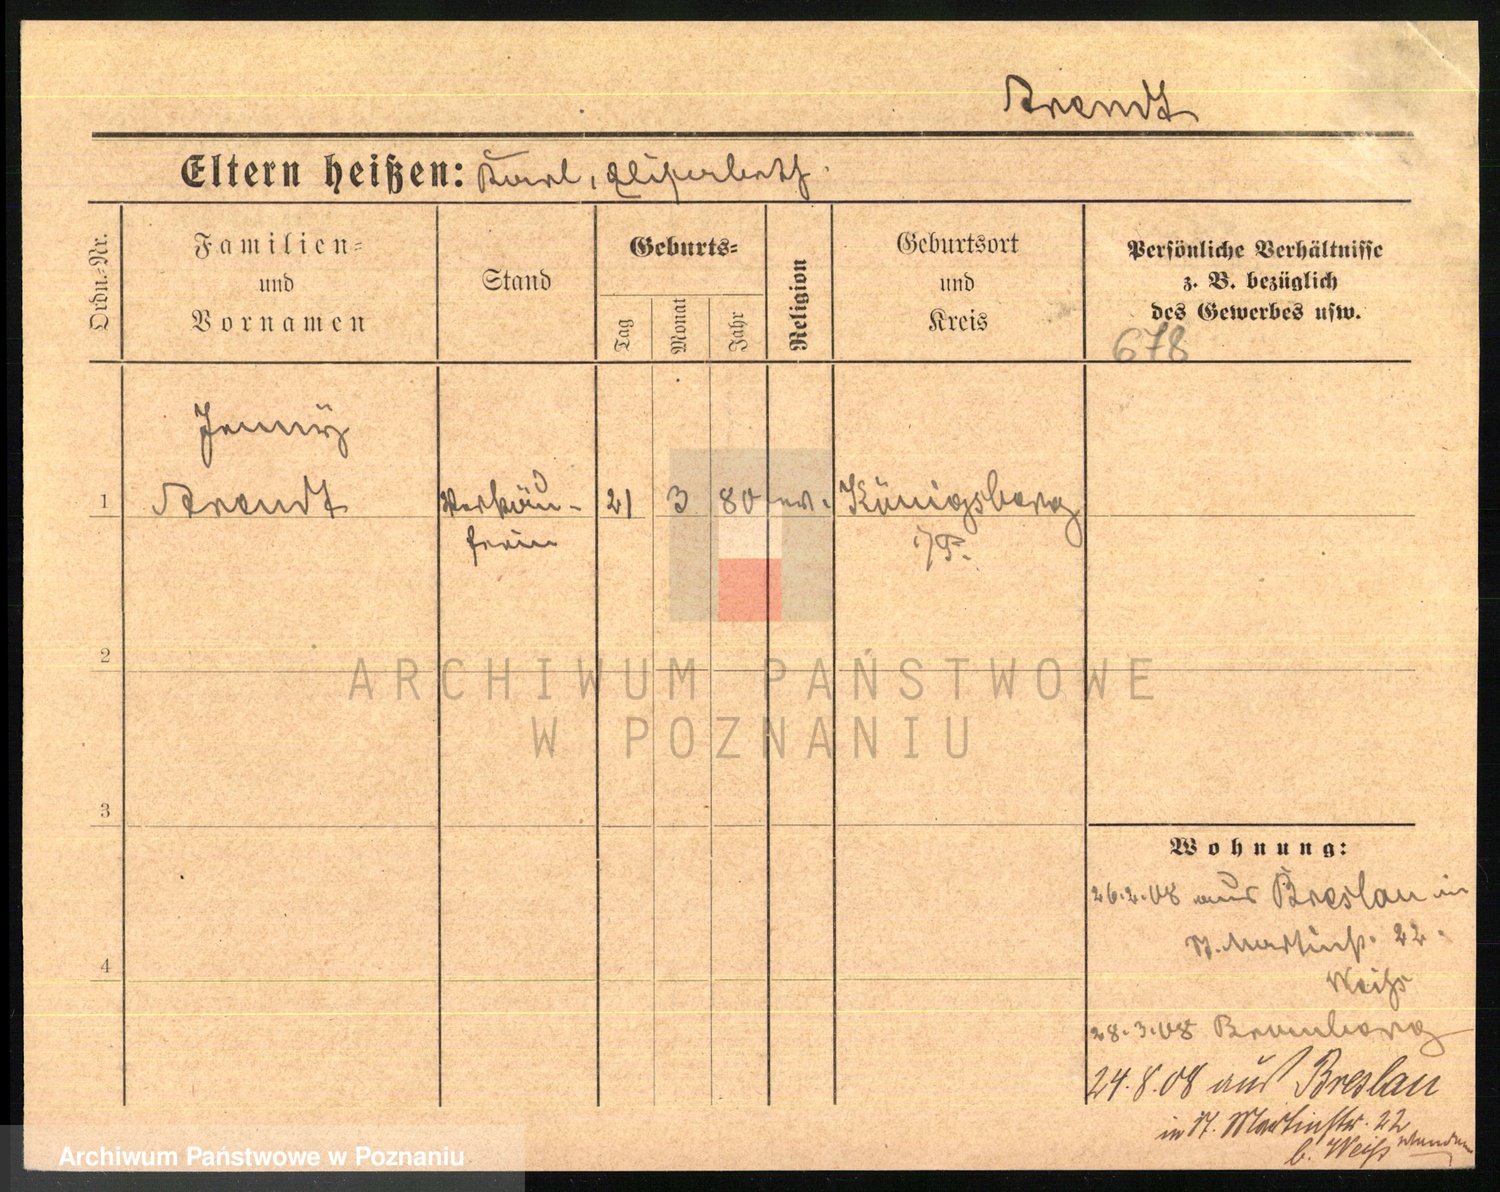 Arendt
Eltern heißen: Karl, Elisabeth.
Ordn.-Nr.
Familien-
und
Vornamen
Stand
Geburts-
Tag
Monat
Jahr
Religion
Geburtsort
und
Kreis
Persönliche Verhältnisse
z. B. bezüglich
des Gewerbes usw.
678
Jenny
1 Arendt Verkäu- 21 3 80 ev. Königsberg
ferin i/P.
2
3
4
Wohnung:
26.2.08 aus Breslau in
St. Martinstr. 22.
Weiß
28.3.08 Bromberg
24.8.08 aus Breslau
in St. Martinstr. 22
b. Weiß wenden
ARCHIWUM PAŃSTWOWE
W POZNANIU
Archiwum Państwowe w Poznaniu